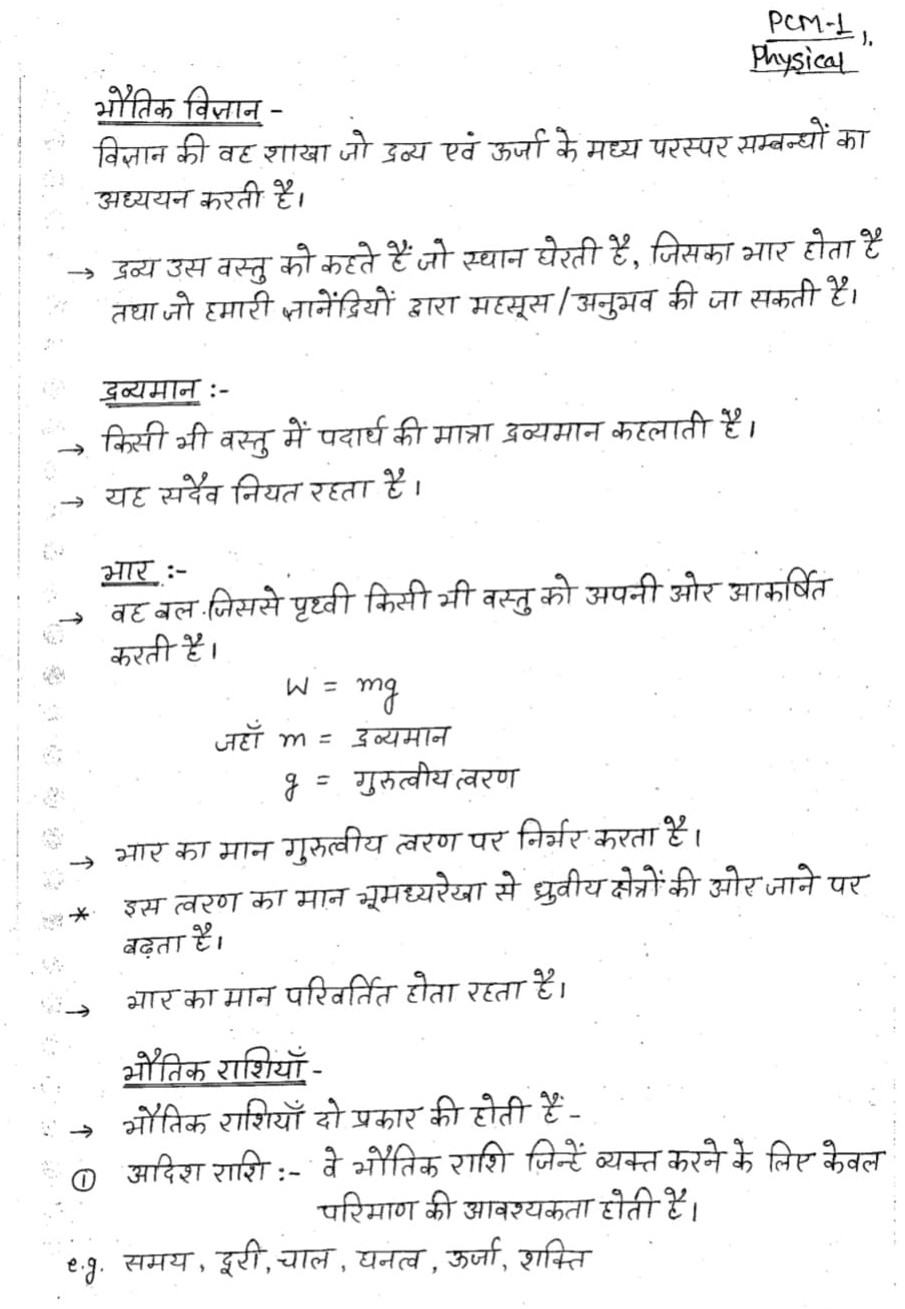 PCM-1
Physical
1.
भौतिक विज्ञान -
विज्ञान की वह शाखा जो द्रव्य एवं ऊर्जा के मध्य परस्पर सम्बन्धों का
अध्ययन करती है।
→ द्रव्य उस वस्तु को कहते हैं जो स्थान घेरती है, जिसका भार होता है
तथा जो हमारी ज्ञानेंद्रियों द्वारा महसूस/अनुभव की जा सकती है।
द्रव्यमान :-
→ किसी भी वस्तु में पदार्थ की मात्रा द्रव्यमान कहलाती है।
→ यह सदैव नियत रहता है।
भार :-
→ वह बल जिससे पृथ्वी किसी भी वस्तु को अपनी ओर आकर्षित
करती है।
W = mg
जहाँ m = द्रव्यमान
g = गुरुत्वीय त्वरण
→ भार का मान गुरुत्वीय त्वरण पर निर्भर करता है।
* इस त्वरण का मान भूमध्यरेखा से ध्रुवीय क्षेत्रों की ओर जाने पर
बढ़ता है।
→ भार का मान परिवर्तित होता रहता है।
भौतिक राशियाँ -
→ भौतिक राशियाँ दो प्रकार की होती हैं -
① अदिश राशि :- वे भौतिक राशि जिन्हें व्यक्त करने के लिए केवल
परिमाण की आवश्यकता होती है।
e.g. समय, दूरी, चाल, घनत्व, ऊर्जा, शक्ति